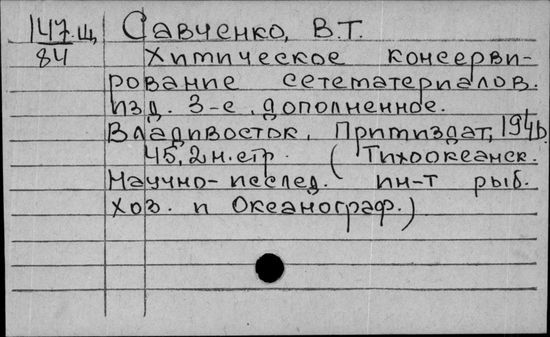 147.Щ, Савченко, В.Т.
84 Химическое консерви-
рование сетематериалов.
Изд. 3-е, дополненное.
Владивосток, Примиздат, 194
45, 2 н. стр. (Тихоокеанск.
Научно-исслед. ин-т рыб.
хоз. и Океанограф.)